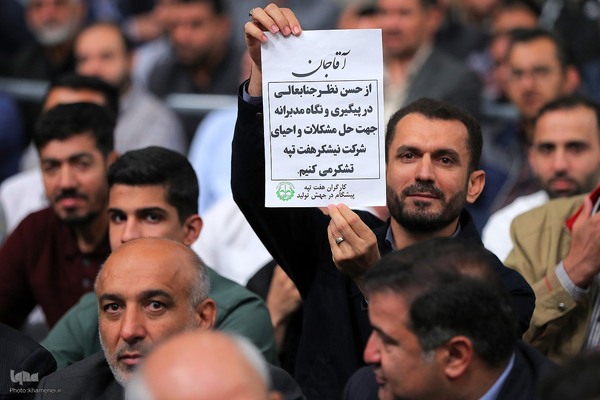 آقاجان
از حسن نظر جنابعالی
در پیگیری و نگاه مدبرانه
جهت حل مشکلات و احیای
شرکت نیشکر هفت تپه
تشکر می کنیم.
کارگران هفت تپه
پیشگام در جهش تولید
Photo:khamenei.ir